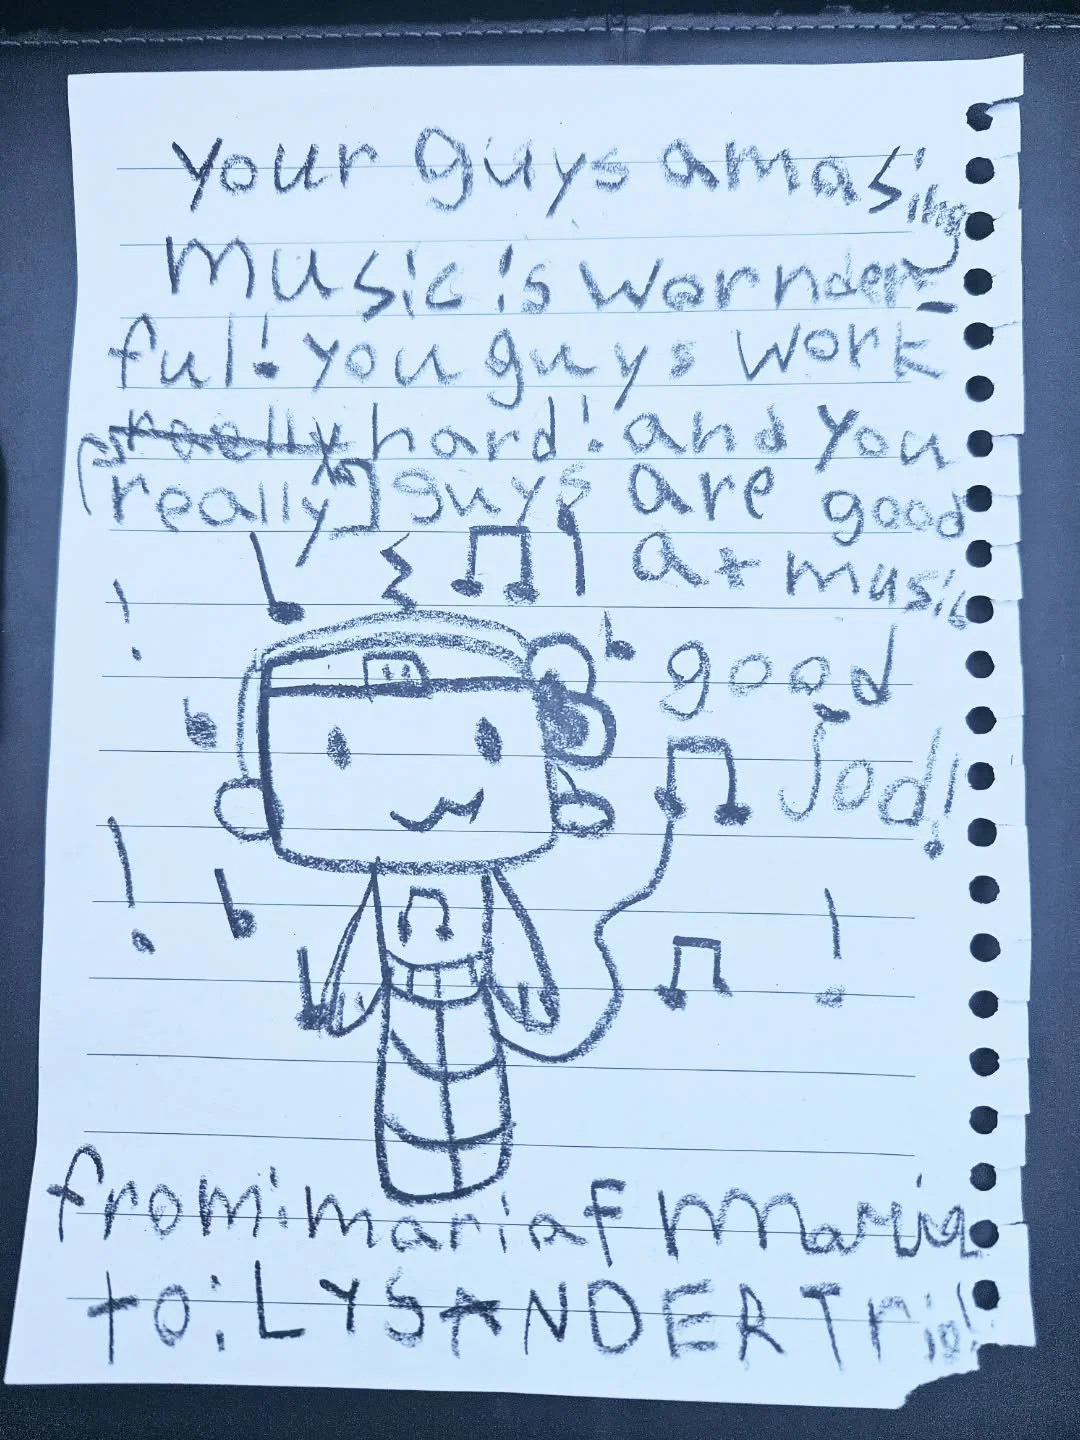 your guys amasing
music is wornder-
ful! you guys work
really hard! and you
(really) guys are good
at music
good
Jod!
from: maria f Maria
to: LYSANDER Trio!